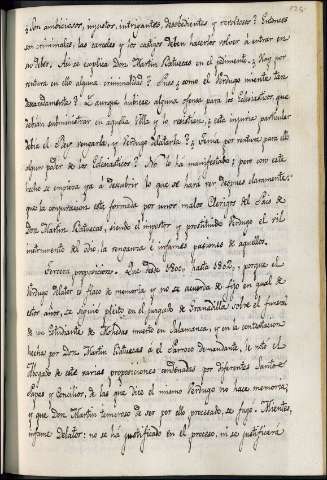 125
¿Son ambiciosos, injustos, intrigantes, desobedientes y revoltosos? Entonces
son criminales, las carceles y los castigos deben hacerlos volver á entrar en
su deber. Asi se esplica Don Martin Batuecas en el pedimento. ¿Hay por
ventura en ello alguna criminalidad? ¿Pues, como el Verdugo miente tan
descaradamente? Y aunque hubiese alguna ofensa para los Eclesiasticos, que
debian subministrar en aquella Villa y lo resistieron, ¿esta injuria particular
debia el Rey vengarla, y Verdugo delatarla? ¿Tenia por ventura para ello
algun poder de los Eclesiasticos? No lo há manifestado; pero con este
hecho se empieza ya á descubrir lo que se hará ver despues claramente,
que la conspiracion está formada por unos malos Clerigos del Pais de
Don Martin Batuecas, siendo el impostor y prostituido Verdugo el vil
instrumento del odio, la venganza é infames pasiones de aquellos.
Tercera proposicion. Que desde 1800, hasta 1802, ¿porque el
Verdugo delator és flaco de memoria y no se acuerda de fijo en qual de
estos años, se siguió pleito en el juzgado de Granadilla sobre el funeral
de un Estudiante de Mohedas muerto en Salamanca, y en la contestacion
hecha por Don Martin Batuecas á el Parroco demandante, le notó el
Abogado de este varias proposiciones condenadas por diferentes Santos
Papas y Concilios, de las que dice el mismo Verdugo no hace memoria;
y que Don Martin temeroso de ser por ello procesado, se fugó. Mientes,
infame Delator: no se há justificado en el proceso, ni se justificará